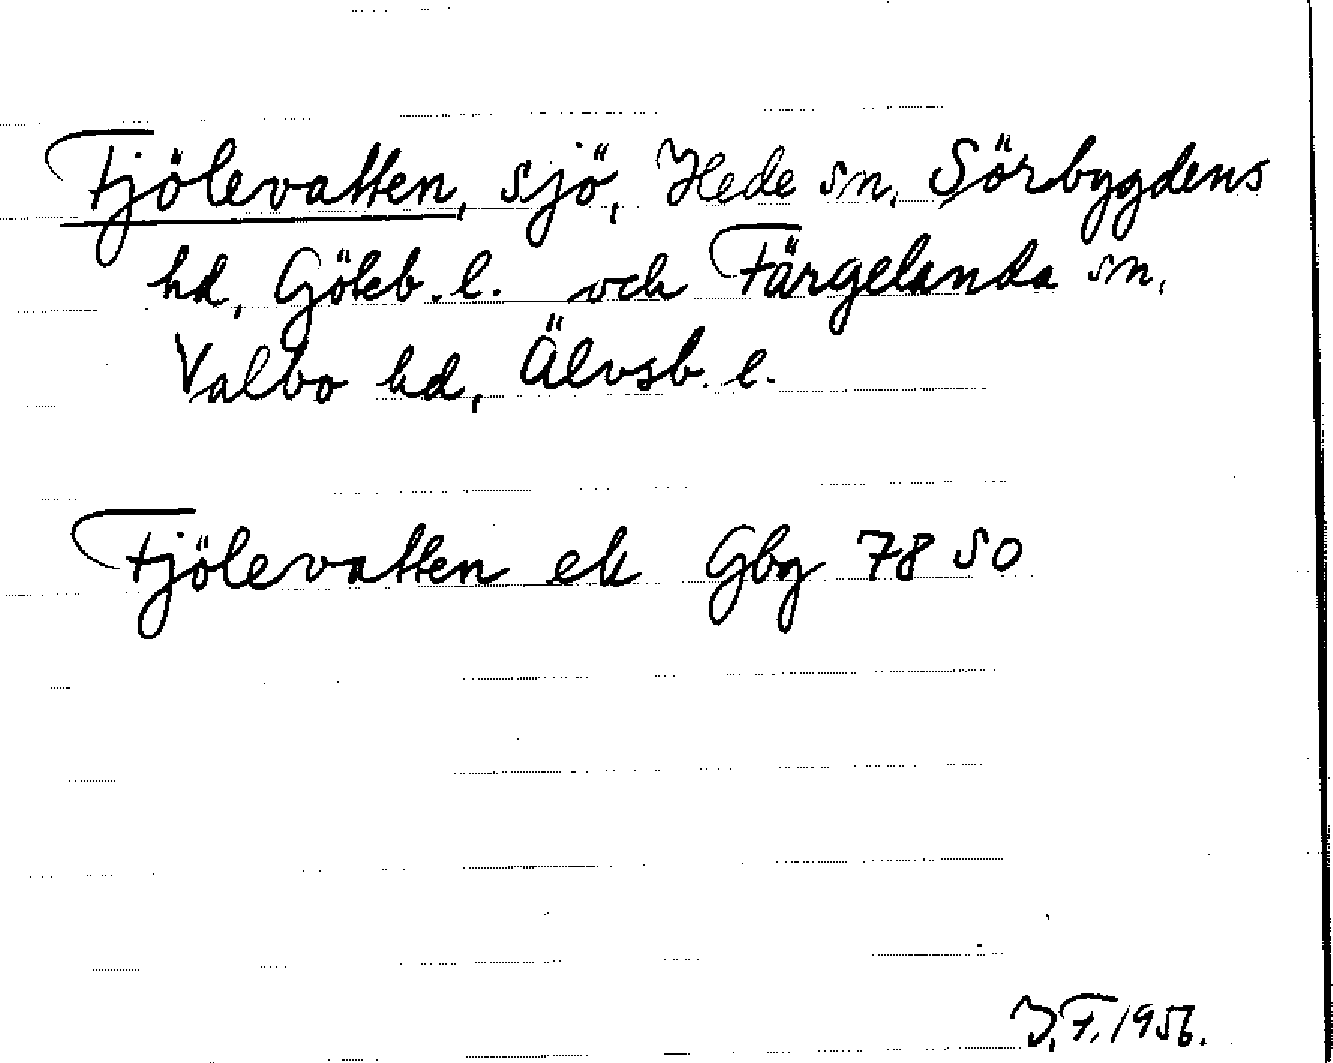 Fjölevatten, sjö, Hede sn, Sörbygdens
hd, Göteb. l. och Färgelanda sn,
Valbo hd, Älvsb. l.
Fjölevatten ek Gbg 78 SO
J.F. 1956.